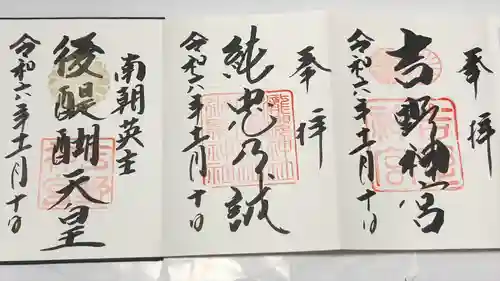 奉拝
吉野神宮
令和六年十一月十日
奉拝
純忠乃誠
令和六年十一月十日
南朝英主
後醍醐天皇
令和六年十一月十日